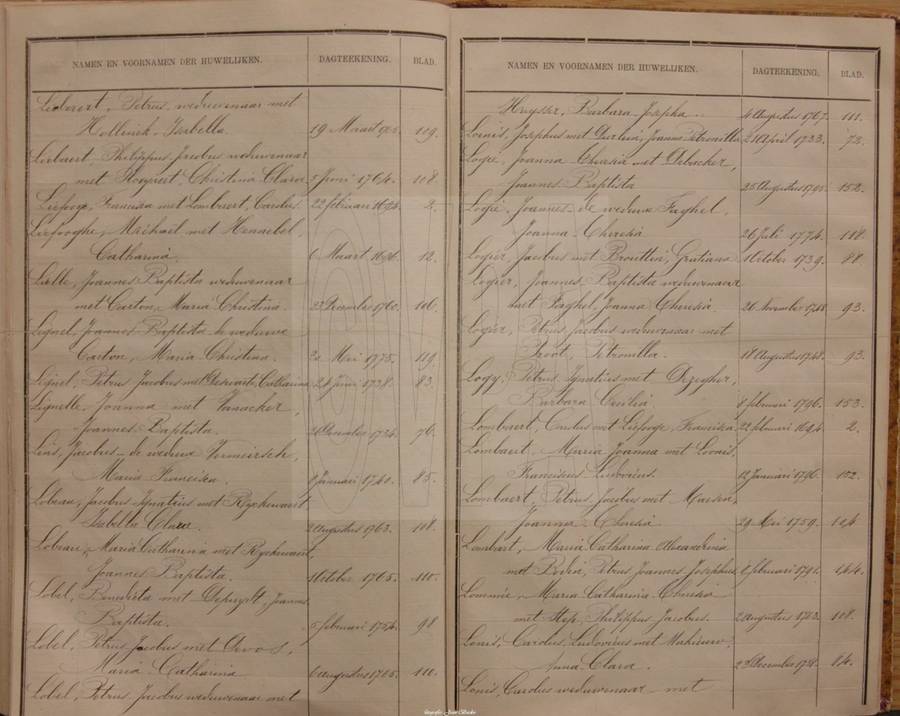 NAMEN EN VOORNAMEN DER HUWELIJKEN. DAGTEEKENING. BLAD.
Petrus, weduwenaar met
Hollinck, Isabella. 19 Maart 119.
Liebaert, Philippus, Jacobus weduwenaar
met Christina Clara 5 Juni 1764. 108.
Liefooge, Francisca met Lombaert, Carolus. 22 februari 1694. 2.
Liefooghe, Michael met Hennebel,
Catharina. 6 Maart 1696. 12.
Lielle, Joannes Baptista weduwenaar
met Carton, Maria Christina. 1760. 106.
Lignel, Joannes Baptista de weduwe
Carton, Maria Christina. Mei 1775. 119.
Lignel, Petrus Jacobus met Catharina 24 Juni 1738. 83.
Lignelle, Joanna met Vanacker,
Joannes Baptista. 1734. 76.
Lins, Jacobus de weduwe Vermeirsch,
Maria Francisca. Januari 1740. 85.
Lobeau, Jacobus Ignatius met Ryckewaert
Isabella Clara. 2 augustus 1763. 108.
Lobeau, Maria Catharina met Ryckewaert,
Joannes Baptista. 1 October 1765. 110.
Lobel, Benedicta met Depuydt, Joannes
Baptista. 5 februari 1754. 98.
Lobel, Petrus Jacobus met Devos,
Maria Catharina 6 augustus 1765. 110.
Lobel, Petrus, Jacobus weduwenaar met
NAMEN EN VOORNAMEN DER HUWELIJKEN. DAGTEEKENING. BLAD.
Barbara Josepha. 4 Augustus 1767. 111.
Josephus met Joanna Petronilla. April 1733. 73.
Logie, Joanna Theresia met Debacker,
Joannes Baptista 25 Augustus 1795. 152.
Logie, Joannes de weduwe Faghel,
Joanna Theresia 26 Juli 1774. 118.
Logier, Jacobus met Gratiana 1 October 1739. 88.
Logier, Joannes, Baptista weduwenaar
met Joanna Theresia. 26 November 1748. 93.
Logier, Petrus, Jacobus weduwenaar met
Petronilla. 18 Augustus 1748. 93.
Logy, Petrus Ignatius met Dezegher,
Barbara Cecilia 1 februari 1796. 153.
Lombaert, Carolus met Liefooge, Francisca. 22 februari 1694. 2.
Lombaert, Maria Joanna met
Franciscus Ludovicus. 12 Januari 1796. 152.
Lombaert, Petrus, Jacobus met
Joanna Theresia 29 Mei 1759. 104.
Lombart, Maria Catharina Alexandrina
met Petrus Joannes Josephus 1 februari 1791. 144.
Lommée, Maria Catharina Theresia
met Philippus Jacobus. 2 augustus 1763. 108.
Carolus, Ludovicus met
Anna Clara. December 84.
Carolus weduwenaar met